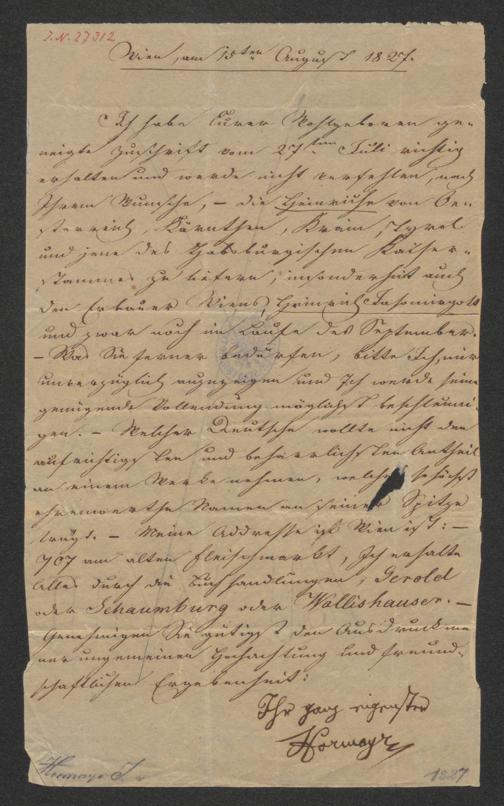 J.N. 27312
Wien, am 15ten August 1827.
Ich habe Eurer Wohlgeboren ge-
neigte Zuschrift vom 27ten Juli richtig
erhalten und werde nicht verfehlen, nach
Ihrem Wunsche, – die Heinriche von Oe-
sterreich, Kärnthen, Krain, Tyrol
und jene des Habsburgischen Kaiser-
stammes zu liefern, insonderheit auch
den Erbauer Wiens, Heinrich Jasomirgott
und zwar noch im Laufe des September.
– Was Sie ferner bedürfen, bitte Ich, mir
unverzüglich anzuzeigen und Ich werde seine
genügende Vollendung möglichst beschleuni-
gen. – Welcher Deutsche wollte nicht den
aufrichtigsten und beharrlichsten Antheil
an einem Werke nehmen, welches so höchst
ehrenwerthe Namen an seiner Spitze
trägt. – Meine Addresse ist Wien ist: –
707 am alten Fleischmarkt, Ich erhalte
Alles durch die Buchhandlungen, Gerold
oder Schaumburg oder Wallishauser. –
Genehmigen Sie gütigst den Ausdruck mei
ner ungemeinen Hochachtung und freund-
schaftlichen Ergebenheit:
Ihr ganz eigenster
Hormayr
Hormayr J.
1827